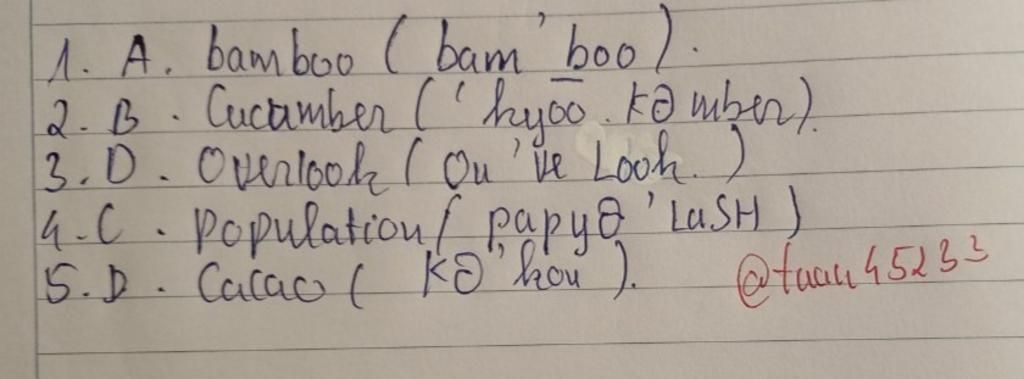 1. A. bamboo ( bam ' boo ).
2. B. Cucumber ( ' kyoo. Kə mber).
3. D. Overlook ( Ou 've Look. )
4. C. Population ( papyə ' LaSH )
5. D. Cacao ( Kə 'kou ). @tuan45233